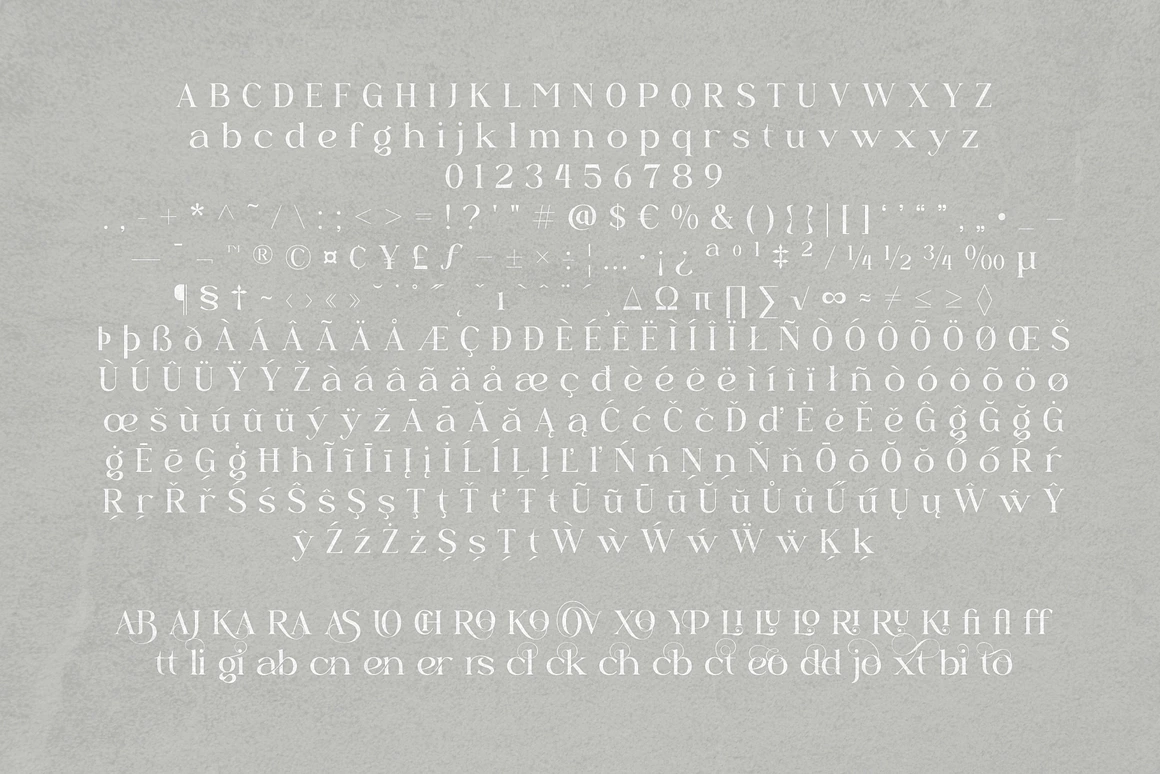 A B C D E F G H I J K L M N O P Q R S T U V W X Y Z
a b c d e f g h i j k l m n o p q r s t u v w x y z
0 1 2 3 4 5 6 7 8 9
. , - + * ^ ~ / \ : ; < > = ! ? ' " # @ $ € % & ( ) { } | [ ] ‘ ’ “ ” ‚ „ • _ –
— ¯ ¬ ™ ® © ¤ ¢ ¥ £ ƒ − ± × ÷ ¦ … · ¡ ¿ ª º ¹ ‡ ² / ¼ ½ ¾ ‰ µ
¶ § † ~ ‹ › « » ˘ ˙ ˚ ˝ ˛ ˇ ı ` ^ ¨ ´ ¸ ∆ Ω π ∏ ∑ √ ∞ ≈ ≠ ≤ ≥ ◊
Þ þ ß ð À Á Â Ã Ä Å Æ Ç Ð Đ È É Ê Ë Ì Í Î Ï Ł Ñ Ò Ó Ô Õ Ö Ø Œ Š
Ù Ú Û Ü Ÿ Ý Ž à á â ã ä å æ ç đ è é ê ë ì í î ï ł ñ ò ó ô õ ö ø
œ š ù ú û ü ý ÿ ž Ā ā Ă ă Ą ą Ć ć Č č Ď ď Ė ė Ě ě Ĝ ĝ Ğ ğ Ġ
ġ Ē ē Ģ ģ Ħ ħ Ĩ ĩ Ī ī Į į İ Ĺ ĺ Ļ ļ Ľ ľ Ń ń Ņ ņ Ň ň Ō ō Ŏ ŏ Ő ő Ŕ ŕ
Ŗ ŗ Ř ř Ś ś Ŝ ŝ Ş ş Ţ ţ Ť ť Ŧ ŧ Ũ ũ Ū ū Ŭ ŭ Ů ů Ű ű Ų ų Ŵ ŵ Ŷ
ŷ Ź ź Ż ż Ș ș Ț ț Ẁ ẁ Ẃ ẃ Ẅ ẅ Ķ ķ
AB AJ KA RA AS UO CH RO KO OV XO YP LI LU LO RI RU KI fi fl ff
tt li gi ab cn en er rs cl ck ch cb ct eo dd jo xt bi to